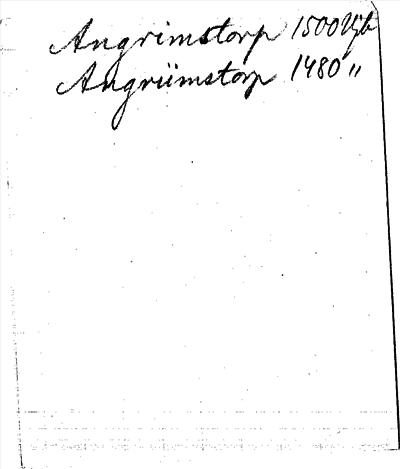 Angrimstorp 1500 Vjb
Angriimstorp 1480 "